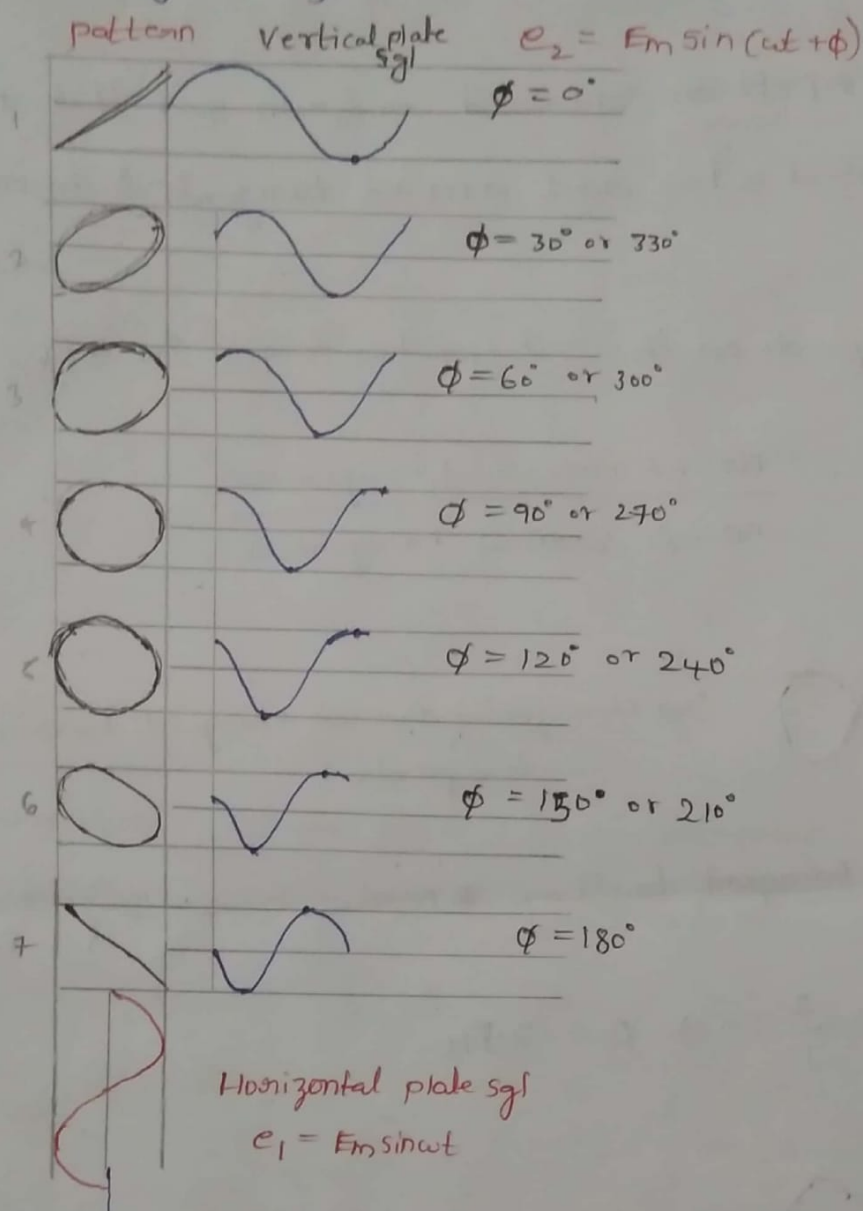 pattern Vertical plate sgl e₂ = Em sin (ωt + ϕ)
1 ϕ = 0°
2 ϕ = 30° or 330°
3 ϕ = 60° or 300°
4 ϕ = 90° or 270°
5 ϕ = 120° or 240°
6 ϕ = 150° or 210°
7 ϕ = 180°
Horizontal plate sgl
e₁ = Em sinωt